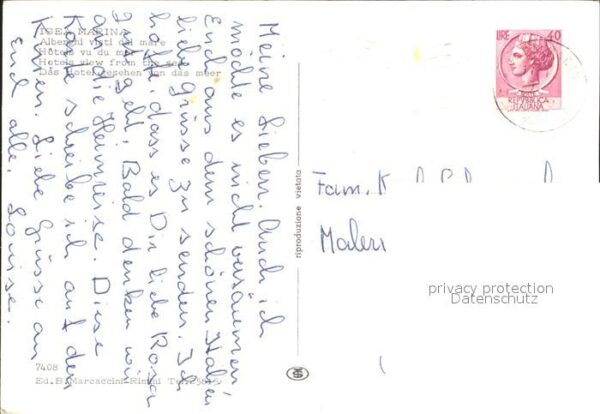 IGEA MARINA
Alberghi visti dal mare
Hôtels vu du mer
Hotels view from the sea
Das Hotel gesehen von das meer
Meine Lieben. Auch ich
möchte es nicht versäumen
Euch aus dem schönen Italien
liebe Grüsse zu senden. Ich
hoffe, dass es Dir liebe Rosa
gut geht. Bald denken wir
an die Heimreise. Diese
Karte schreibe ich auf den
Knien. Liebe Grüsse an
Euch alle. Louise.
7408
Ed. B. Marcaccini - Rimini Tel.
riproduzione vietata
LIRE 40
REPVBBLICA
ITALIANA
Fam. K
Maler
privacy protection
Datenschutz